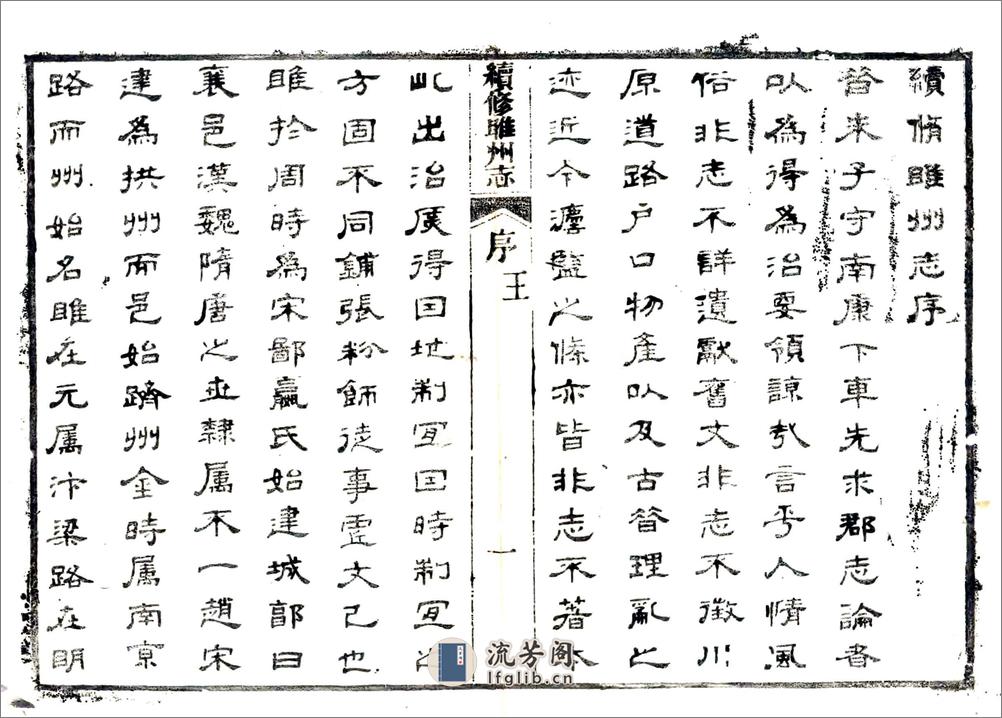 續脩睢州志序
昔朱子守南康下車先求郡志論者
以為得為治要領諒哉言乎人情風
俗非志不詳遺獻舊文非志不徵川
原道路戶口物產以及古昔理亂之
迹近今之條亦皆非志不著本
續修睢州志 序 王 一
此出治庶得因地制宜因時制宜之
方固不同鋪張粉飾徒事虛文已也
睢於周時為宋鄙嬴氏始建城郭曰
襄邑漢魏隋唐之世隸屬不一趙宋
建為拱州而邑始躋州金時屬南京
路而州始名睢在元属汴梁路在明
流芳阁
lfglib.cn